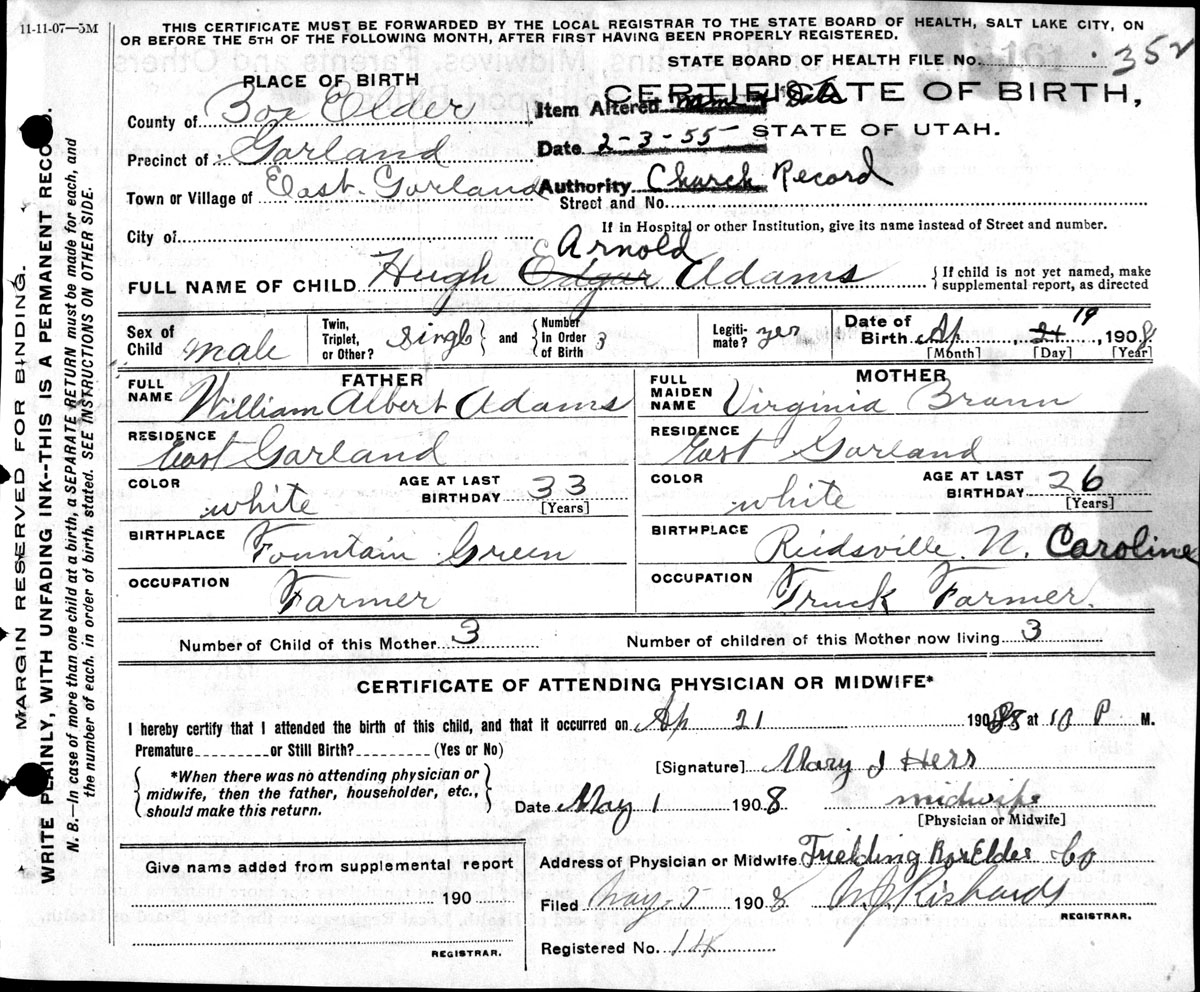 11-11-07—5M
THIS CERTIFICATE MUST BE FORWARDED BY THE LOCAL REGISTRAR TO THE STATE BOARD OF HEALTH, SALT LAKE CITY, ON
OR BEFORE THE 5TH OF THE FOLLOWING MONTH, AFTER FIRST HAVING BEEN PROPERLY REGISTERED.
STATE BOARD OF HEALTH FILE No. 352
PLACE OF BIRTH
CERTIFICATE OF BIRTH,
STATE OF UTAH.
County of Box Elder
Item Altered Date
Precinct of Garland
Date 2-3-55
Town or Village of East Garland
Authority Church Record
Street and No.
City of
If in Hospital or other Institution, give its name instead of Street and number.
Arnold
FULL NAME OF CHILD Hugh Edgar Adams
{If child is not yet named, make
supplemental report, as directed
Sex of Child male
Twin, Triplet, or Other? Singl } and { Number In Order of Birth 3
Legiti-mate? yes
Date of Birth Ap 21 19, 1908
[Month] [Day] [Year]
FATHER
FULL NAME William Albert Adams
RESIDENCE East Garland
COLOR white
AGE AT LAST BIRTHDAY 33
[Years]
BIRTHPLACE Fountain Green
OCCUPATION Farmer
MOTHER
FULL MAIDEN NAME Virginia Brann
RESIDENCE East Garland
COLOR white
AGE AT LAST BIRTHDAY 26
[Years]
BIRTHPLACE Reidsville N. Caroline
OCCUPATION Truck Farmer.
Number of Child of this Mother 3
Number of children of this Mother now living 3
CERTIFICATE OF ATTENDING PHYSICIAN OR MIDWIFE*
I hereby certify that I attended the birth of this child, and that it occurred on Ap 21 1908 at 10 P M.
Premature or Still Birth? (Yes or No)
{*When there was no attending physician or
midwife, then the father, householder, etc.,
should make this return.}
[Signature] Mary J Herr
Date May 1 1908 midwife
[Physician or Midwife]
Give name added from supplemental report
190
REGISTRAR.
Address of Physician or Midwife Frielding Box Elder Co
Filed May 5 1908 Richards
REGISTRAR.
Registered No. 14
MARGIN RESERVED FOR BINDING.
WRITE PLAINLY, WITH UNFADING INK--THIS IS A PERMANENT RECORD.
N. B.—In case of more than one child at a birth, a SEPARATE RETURN must be made for each, and
the number of each, in order of birth, stated. SEE INSTRUCTIONS ON OTHER SIDE.